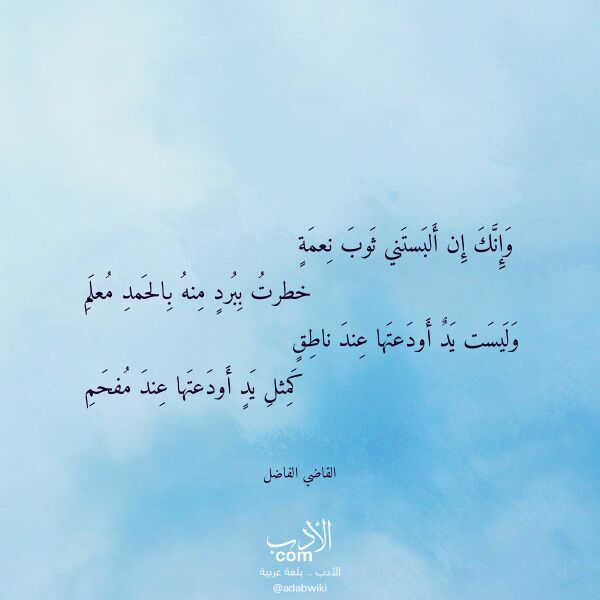 وَإِنَّكَ إِن أَلبَستَني ثَوبَ نِعمَةٍ
خطرتُ بِبُردٍ مِنهُ بِالحَمدِ مُعلَمِ
وَلَيسَت يَدٌ أَودَعتَها عِندَ ناطِقٍ
كَمِثلِ يَدٍ أَودَعتَها عِندَ مُفحَمِ
القاضي الفاضل
الأدب
com
الأدب .. بلغة عربية
@adabwiki